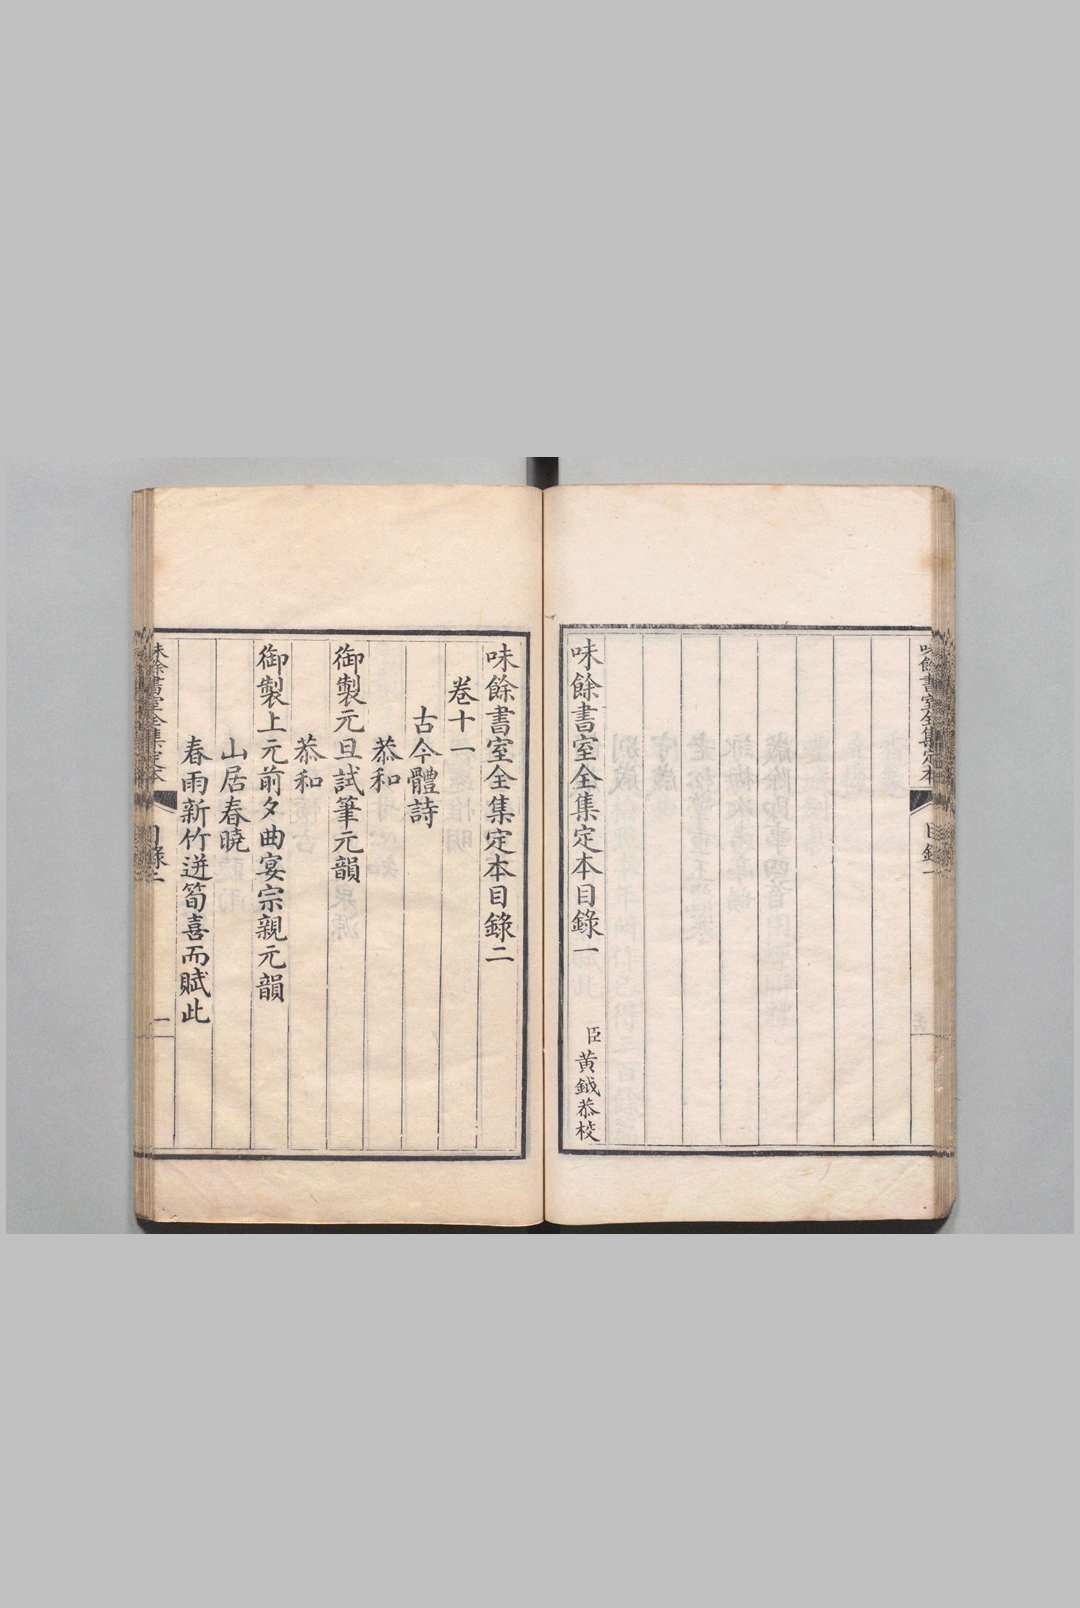 味餘書室全集定本
目錄一
味餘書室全集定本目錄一
臣黃鉞恭校
味餘書室全集定本目錄二
卷十一
古今體詩
恭和
御製元旦試筆元韻
恭和
御製上元前夕曲宴宗親元韻
山居春曉
春雨新竹迸筍喜而賦此
味餘書室全集定本
目錄二
一